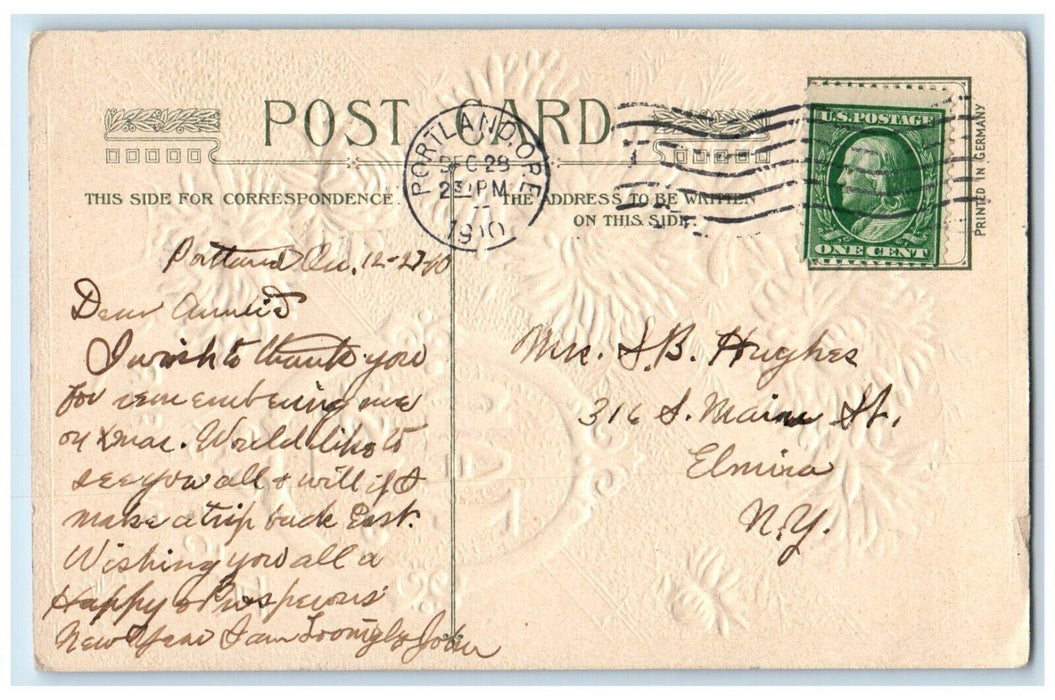 POST CARD
THIS SIDE FOR CORRESPONDENCE.
THE ADDRESS TO BE WRITTEN
ON THIS SIDE.
PORTLAND, ORE
DEC 28
2 30 PM
1910
U.S. POSTAGE
ONE CENT
PRINTED IN GERMANY
Portland Or. 12-27-10
Dear Auntie
I wish to thank you
for remembering me
on Xmas. Would like to
see you all & will if I
make a trip back East.
Wishing you all a
Happy & Prosperous
New Year I am Lovingly John
Mrs. S.B. Hughes
316 S. Main St.
Elmira
N.Y.